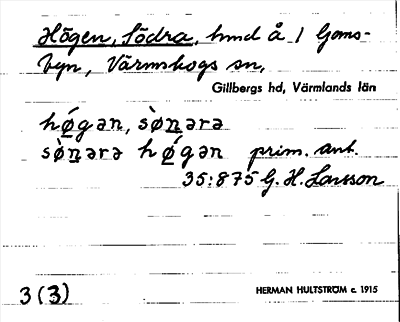 Högen, Södra, hmd å 1 Goms-
byn, Värmskogs sn,
Gillbergs hd, Värmlands län
hǿgən, sø̀nərə
sø̀nərə hǿgən prim. ant.
35:875 G. H. Larsson
3(3)
HERMAN HULTSTRÖM c. 1915